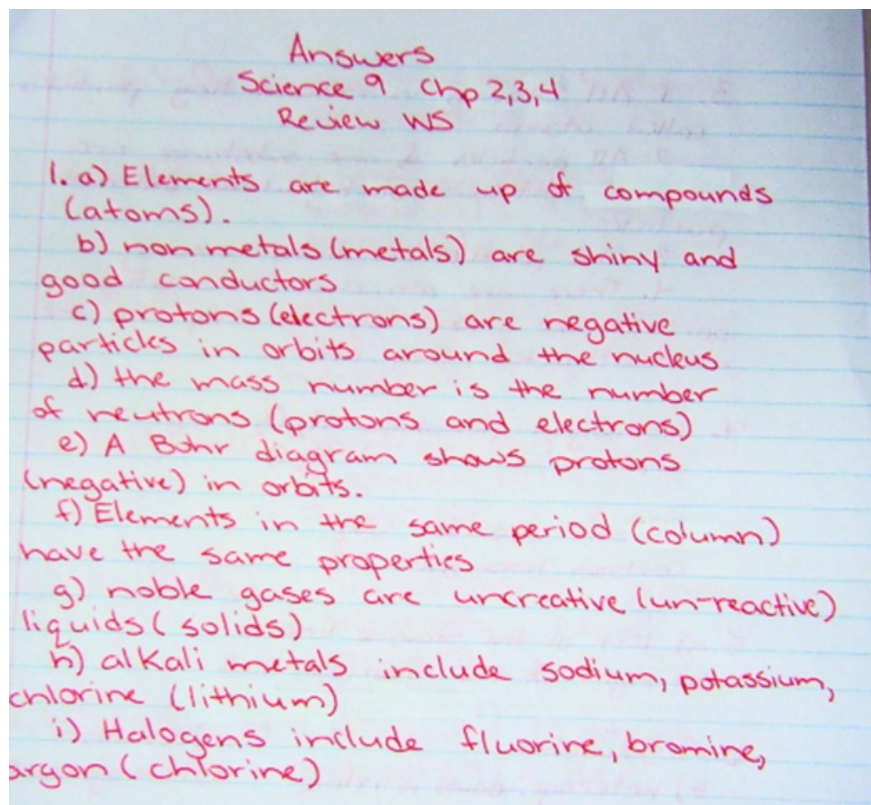 Answers
Science 9 Chp 2,3,4
Review WS
1. a) Elements are made up of compounds
(atoms).
b) non metals (metals) are shiny and
good conductors
c) protons (electrons) are negative
particles in orbits around the nucleus
d) the mass number is the number
of neutrons (protons and electrons)
e) A Bohr diagram shows protons
(negative) in orbits.
f) Elements in the same period (column)
have the same properties
g) noble gases are uncreative (un-reactive)
liquids (solids)
h) alkali metals include sodium, potassium,
chlorine (lithium)
i) Halogens include fluorine, bromine,
argon (chlorine)